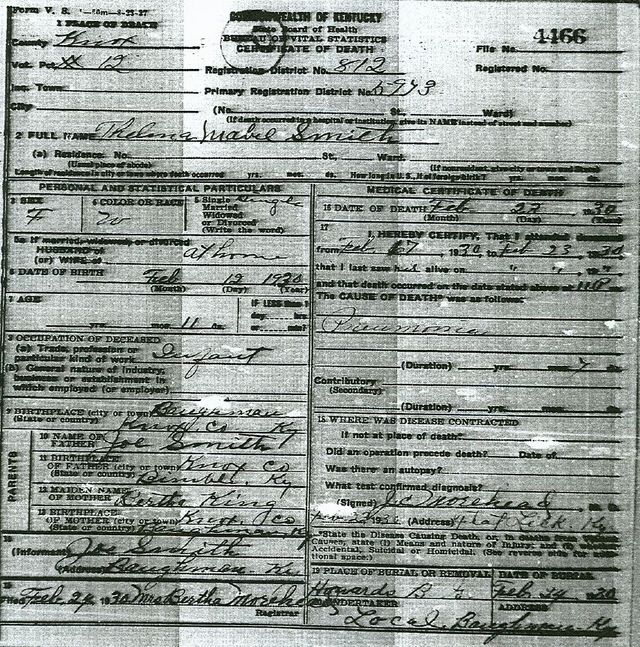 Form V. S.
COMMONWEALTH OF KENTUCKY
State Board of Health
BUREAU OF VITAL STATISTICS
CERTIFICATE OF DEATH
1 PLACE OF DEATH
County Knox
File No. 4166
Vot. Pct. # 12
Registration District No. 812
Registered No.
Inc. Town
Primary Registration District No. 5943
City (No. St., Ward)
(If death occurred in a hospital or institution, give its NAME instead of street and number)
2 FULL NAME Thelma Mabel Smith
(a) Residence. No. St., Ward.
(Usual place of abode)
Length of residence in city or town where death occurred yrs. mos. ds.
PERSONAL AND STATISTICAL PARTICULARS
3 SEX F
4 COLOR OR RACE W
5 Single Married Widowed or Divorced (Write the word) Single
5a If married, widowed, or divorced
HUSBAND of
(or) WIFE of at home
6 DATE OF BIRTH Feb 12 1930
(Month) (Day) (Year)
7 AGE yrs. mos. 11 ds.
IF LESS than 1 day, hrs. or min?
8 OCCUPATION OF DECEASED
(a) Trade, profession or particular kind of work Infant
(b) General nature of industry, business or establishment in which employed (or employer)
9 BIRTHPLACE (city or town) Baughman
(State or country) Knox Co Ky
PARENTS
10 NAME OF FATHER Joe Smith
11 BIRTHPLACE OF FATHER (city or town) Knox Co
(State or country) Bimble, Ky
12 MAIDEN NAME OF MOTHER Bertha King
13 BIRTHPLACE OF MOTHER (city or town) Knox, Co
(State or country) Baughman, Ky
14 (Informant) Joe Smith
(Address) Baughman Ky
15 Filed Feb 24 1930 Mrs Bertha
Registrar
MEDICAL CERTIFICATE OF DEATH
16 DATE OF DEATH Feb 23 1930
(Month) (Day)
17 I HEREBY CERTIFY, That I attended deceased
from Feb 1930 to Feb 23 1930
that I last saw h alive on " "
and that death occurred on the date stated above at 11 P m.
The CAUSE OF DEATH* was as follows:
Pneumonia
(Duration) yrs. mos. 7 ds.
Contributory
(Secondary)
(Duration) yrs. mos. ds.
18 WHERE WAS DISEASE CONTRACTED
if not at place of death?
Did an operation precede death? Date of
Was there an autopsy?
What test confirmed diagnosis?
(Signed) M. D.
(Address) Flat Lick Ky
*State the Disease Causing Death, or, in deaths from Violent Causes, state (1) Means and nature of Injury; and (2) whether Accidental, Suicidal or Homicidal. (See reverse side for additional space.)
19 PLACE OF BURIAL OR REMOVAL Howards B G
DATE OF BURIAL Feb 24 1930
20 UNDERTAKER Local
ADDRESS Baughman Ky